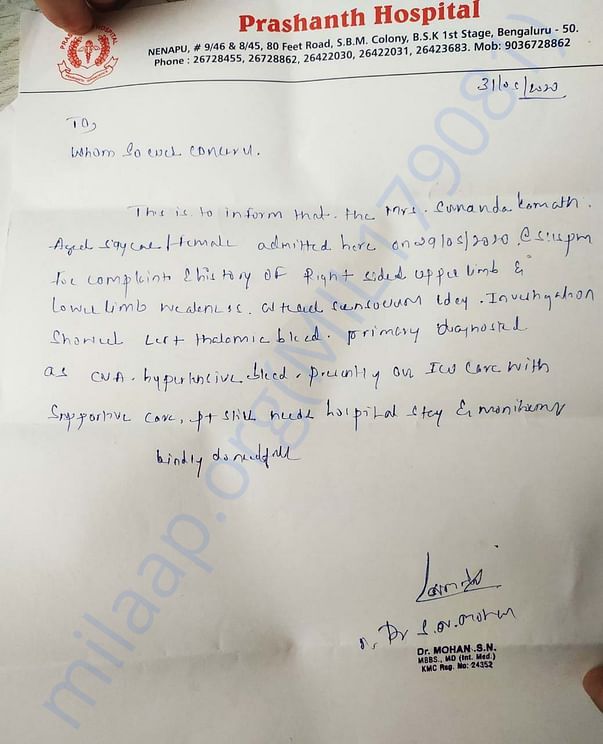 Prashanth Hospital
NENAPU, # 9/46 & 8/45, 80 Feet Road, S.B.M. Colony, B.S.K 1st Stage, Bengaluru - 50.
Phone : 26728455, 26728862, 26422030, 26422031, 26423683. Mob: 9036728862
31/05/2020
To,
whom so ever concern.
This is to inform that the Mrs. Sunanda Kamath.
Aged year/female admitted here on 29/05/2020 @ 5:15pm
for complaint & history of Right sided upper limb &
lower limb weakness. altered sensorium 1day. Investigation
showed Left thalamic bleed. primary diagnosed
as CVA. hypertensive bleed. presently on ICU care with
supportive care, pt still needs hospital stay & monitoring
kindly do needful
Dr S.N. Mohan
Dr. MOHAN .S.N.
MBBS., MD (Int. Med.)
KMC Reg. No: 24352
milaap.org(MIL179081)